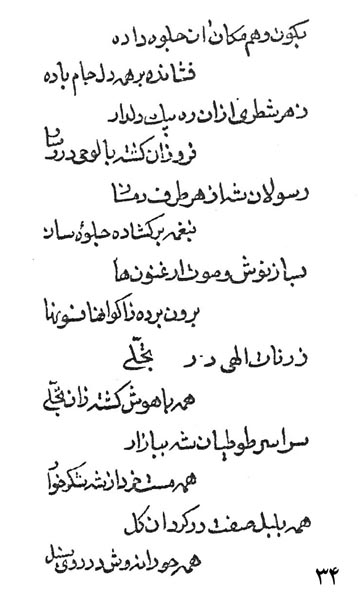 بکون و هم مکان آن جلوه داده
فشانده بر همه دل جام باده
ز هر شطری از آن ره پیک دلدار
فروزان کشته با لوحی در
رسولان شد از هر طرف
نغمه برکشاده جلوهٔ سان
بساز نوش و صوت ارغنون ها
برون برده ز اکوانها فسونها
ز رنات الهی د ر تجلّی
همه باهوش کشته زان تجلّی
سراسر طوطیان شد ببازار
همه مست خود از شه شکر
همه بلبل صفت در کرد آن کل
همه چو در روی سنبل
۳۴